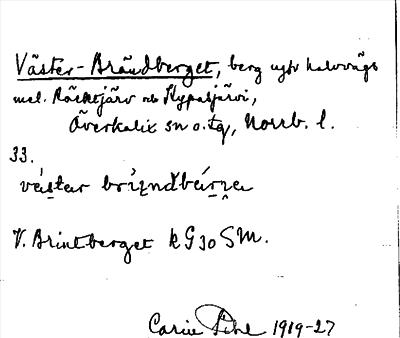 Väster-Brändberget, berg ungf. halvvägs
mel. Räcktjärv o. Hypasjärvi,
Överkalix sn o. tg, Norrb. l.
33.
V. Brintberget kG30SM.
Carin Pihl 1919-27